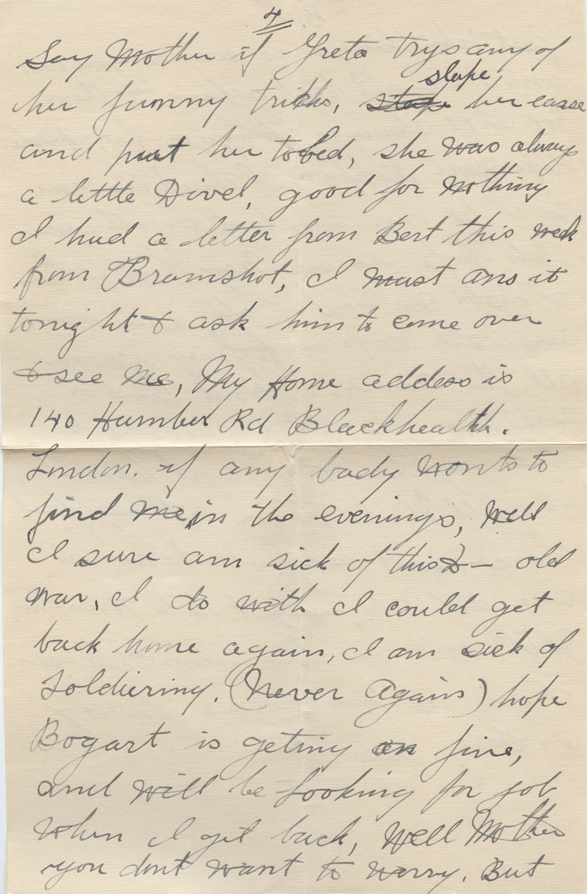 4
Say Mother if Greta trys any of
her funny tricks, slape her easse
and put her to bed, she was always
a little Divel, good for nothing
I had a letter from Bert this week
from Bramshot, I must ans it
tonight & ask him to come over
& see me, My Home address is
140 Humber Rd Blackhealth.
London. if any body wonts to
find me in the evenings, Well
I sure am sick of this D— old
war, I do with I could get
back home again, I am sick of
Soldiering. (Never Again) hope
Bogart is geting on fine,
and will be looking for job
when I get back, Well Mother
you dont want to worry. But